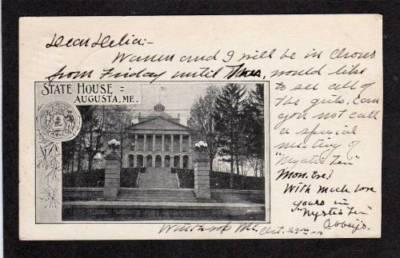 Dear Delia:-
Warren and I will be in Chous
from Friday until Mon., would like
to see all of
the girls, can
you not call
a special
meeting of
"Mystic Ten"
Mon. Eve?
With much love
yours in
"Mystic Ten"
Abbie J.
STATE HOUSE =
AUGUSTA, ME.
Winthrop Me. Oct.